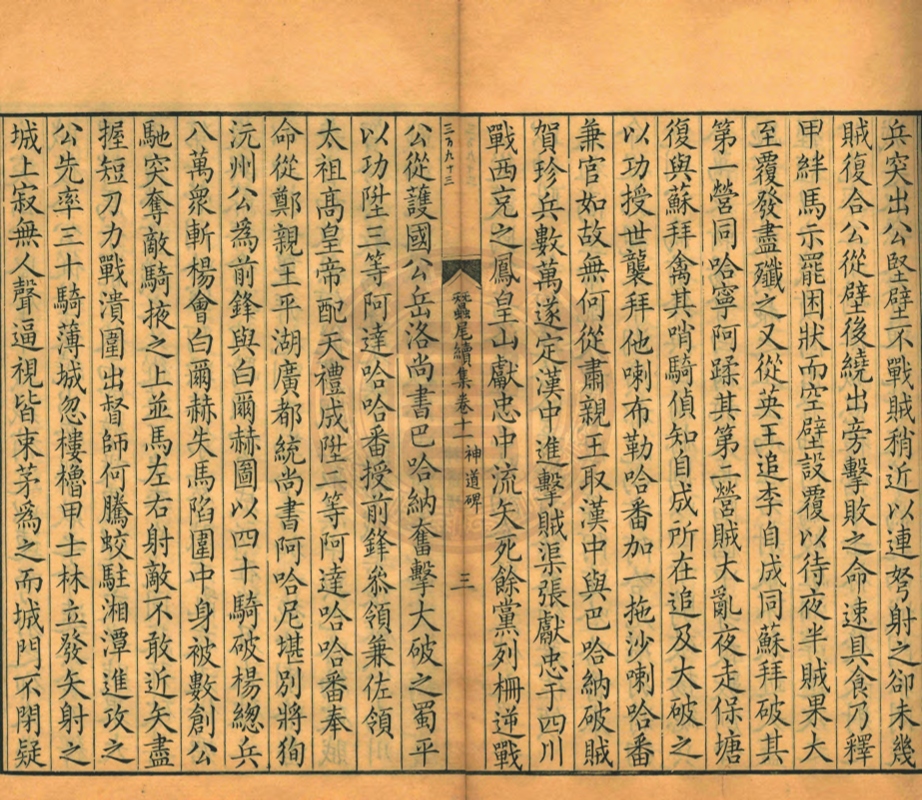 兵突出公堅壁不戰賊稍近以連弩射之卻未幾
賊復合公從壁後繞出旁擊敗之命速具食乃釋
甲絆馬示罷困狀而空壁設覆以待夜半賊果大
至覆發盡殲之又從英王追李自成同蘇拜破其
第一營同哈寧阿蹂其第二營賊大亂夜走保塘
復與蘇拜禽其哨騎偵知自成所在追及大破之
以功授世襲拜他喇布勒哈番加一拖沙喇哈番
兼官如故無何從肅親王取漢中與巴哈納破賊
賀珍兵數萬遂定漢中進擊賊渠張獻忠于四川
戰西充之鳳皇山獻忠中流矢死餘黨列柵逆戰
三百九十三
蠶尾續集卷十一 神道碑 三
公從護國公岳洛尚書巴哈納奮擊大破之蜀平
以功陞三等阿達哈哈番授前鋒叅領兼佐領
太祖高皇帝配天禮成陞二等阿達哈哈番奉
命從鄭親王平湖廣都統尚書阿哈尼堪別將狥
沅州公爲前鋒與白爾赫圖以四十騎破楊總兵
八萬衆斬楊會白爾赫失馬陷圍中身被數創公
馳突奪敵騎掖之上並馬左右射敵不敢近矢盡
握短刀力戰潰圍出督師何騰蛟駐湘潭進攻之
公先率三十騎薄城忽樓櫓甲士林立發矢射之
城上寂無人聲逼視皆束茅爲之而城門不閉疑